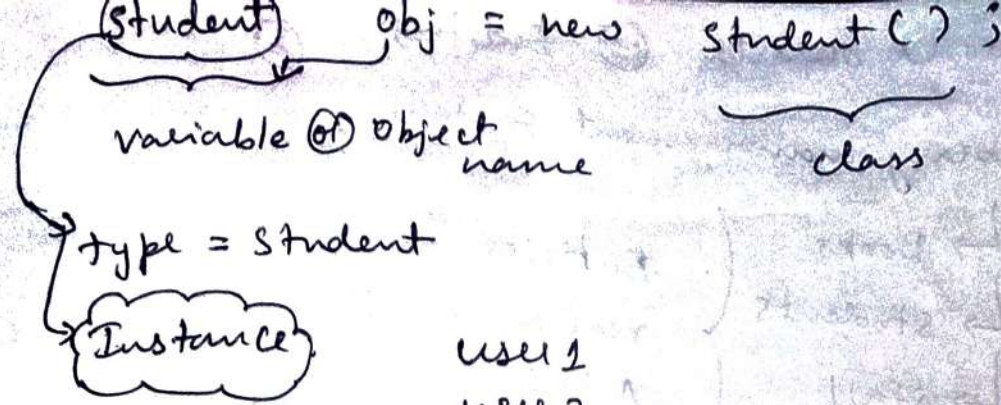 student obj = new student ( ) ;
variable or object
name
class
type = student
Instance
user 1